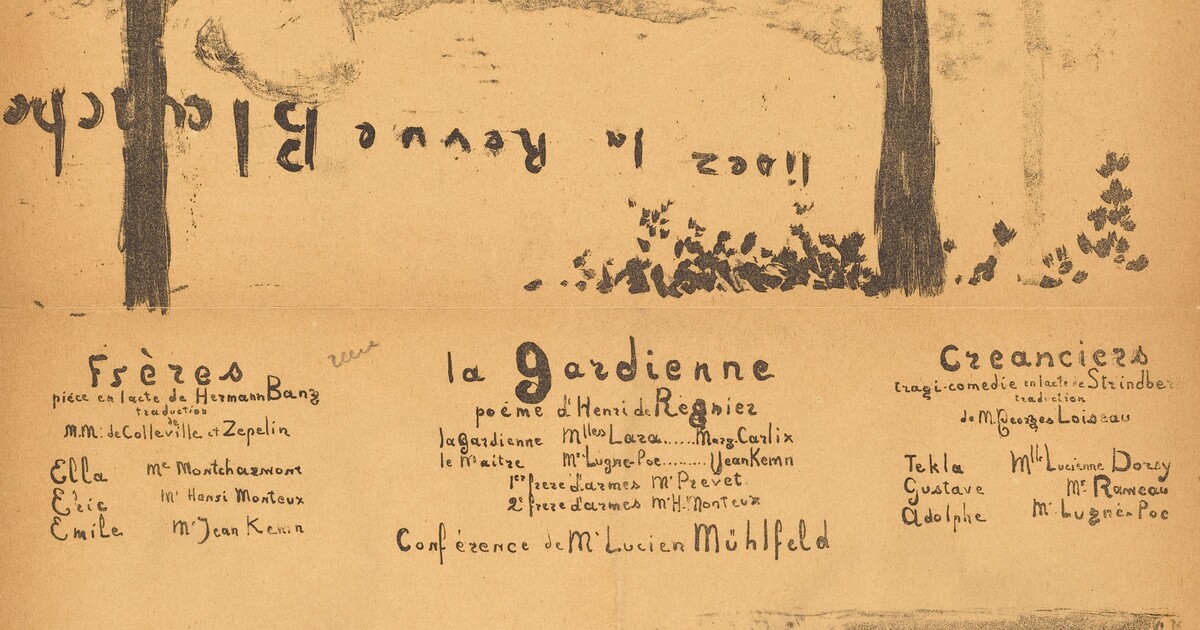 lisez la Revue Blanche
Frères
pièce en 1 acte de Hermann Bang
traduction
de
M.M: de Colleville et Zepelin
Ella Me Montcharmont
Eric Mr Henri Monteux
Emile Mr Jean Kemn
la gardienne
poème d'Henri de Régnier
la gardienne Mlles Lara......Marg. Carlix
le Maitre Mr Lugne-Poe.........Jean Kemn
1er frere d'armes Mr Prevet
2e frere d'armes Mr H. Monteux
Conférence de Mr Lucien Mühlfeld
Creanciers
tragi-comedie en 1 acte de Strindber
traduction
de M. Georges Loiseau
Tekla Mlle Lucienne Dorsy
Gustave Mr Rameau
Adolphe Mr Lugné-Poe